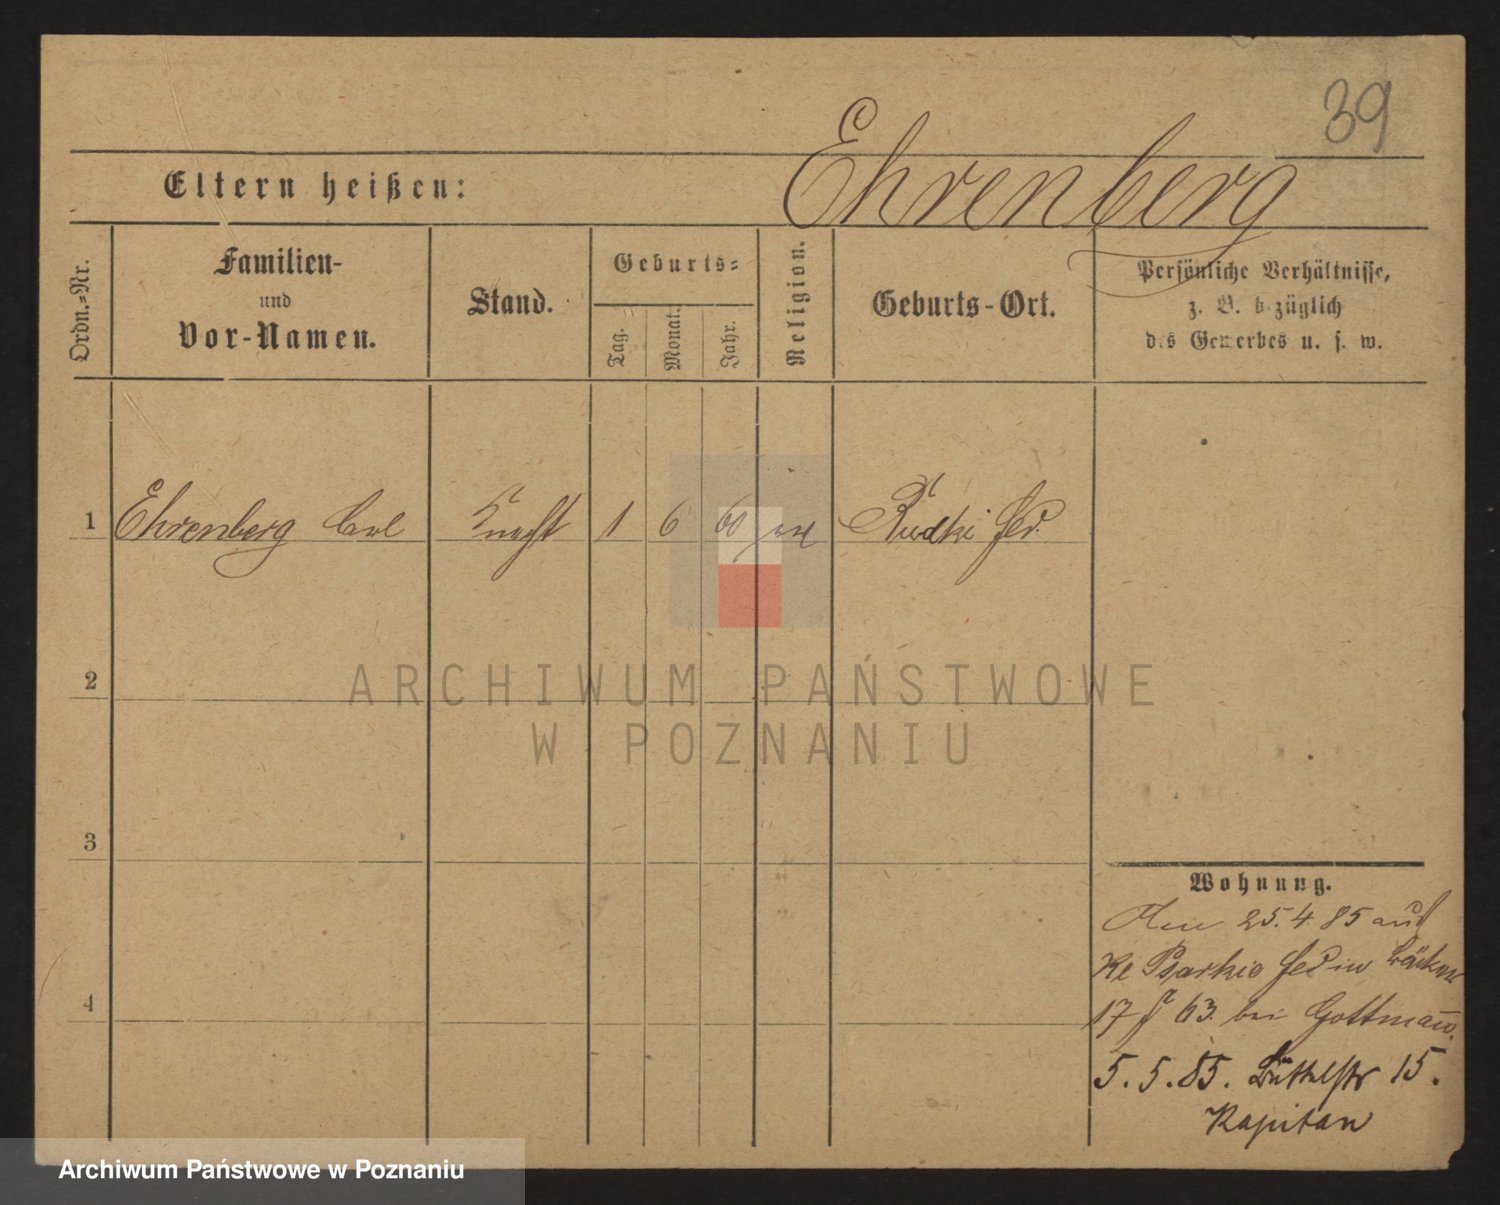 39
Ehrenberg
Eltern heißen:
Ordn.-Nr.
Familien-
und
Vor-Namen.
Stand.
Geburts-
Tag.
Monat.
Jahr.
Religion.
Geburts-Ort.
Persönliche Verhältnisse,
z. B. bezüglich
des Gewerbes u. s. w.
1 Ehrenberg Carl Knecht 1 6 60 Rudki
2
3
4
ARCHIWUM PAŃSTWOWE
W POZNANIU
Wohnung.
25.4.85 aus
Psarkie
17 63. bei Gottmann
5.5.85. Büttelstr 15.
Kapitan
Archiwum Państwowe w Poznaniu